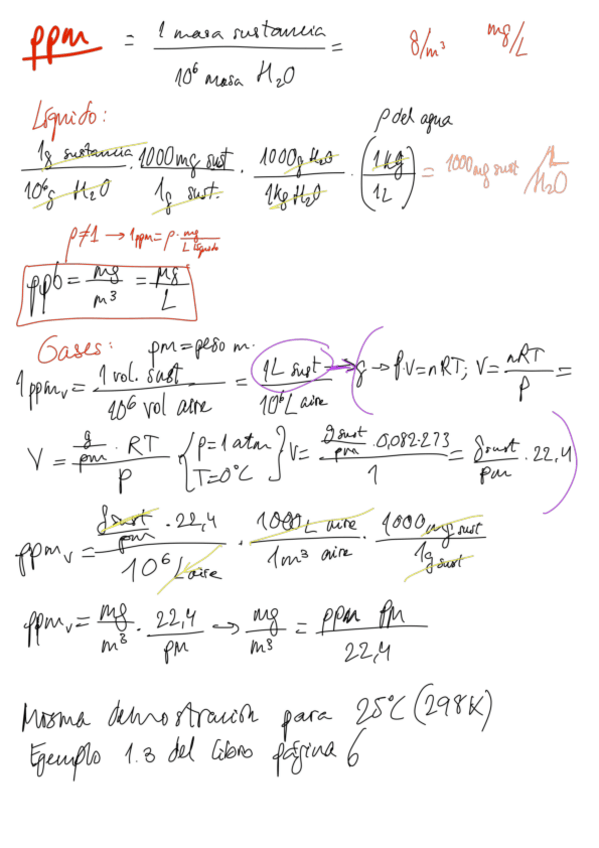 ppm = 1 masa sustancia / 10⁶ masa H₂O = g/m³ mg/L
Líquido: ρ del agua
1g sustancia / 10⁶g H₂O · 1000mg sust / 1g sust. · 1000g H₂O / 1kg H₂O · (1kg / 1L) = 1000mg sust / L H₂O
ρ≠1 → 1ppm = ρ · mg / L líquido
ppb = mg / m³ = μg / L
Gases: pm = peso m.
1 ppmᵥ = 1 vol. sust / 10⁶ vol aire = 1L sust / 10⁶ L aire → g → P·V = nRT; V = nRT / P =
V = g/pm · RT / P {P=1 atm T=0°C} V = g sust/pm · 0,082·273 / 1 = g sust / pm · 22,4
ppmᵥ = g sust/pm · 22,4 / 10⁶ L aire · 1000 L aire / 1m³ aire · 1000 mg sust / 1g sust
ppmᵥ = mg / m³ · 22,4 / pm → mg / m³ = ppm Pm / 22,4
Misma demostración para 25°C (298K)
Ejemplo 1.3 del libro página 6